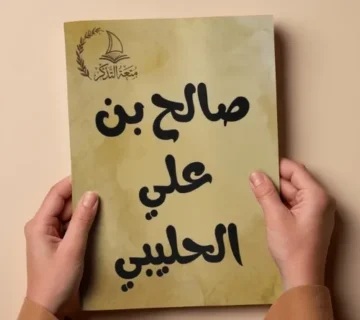 متعة التذكر
صالح بن
علي
الحليبي